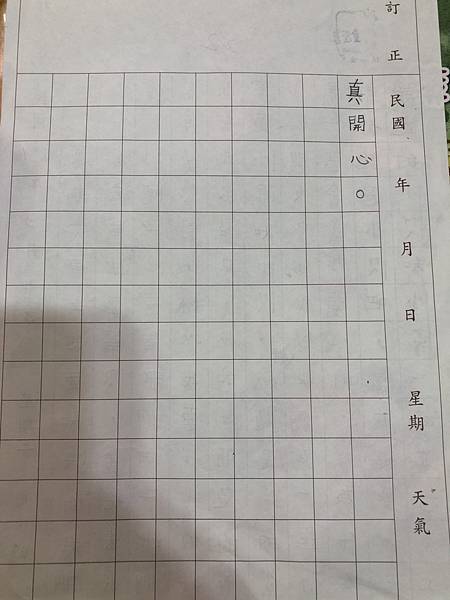 訂正
民國 年 月 日 星期 天氣
真開心。